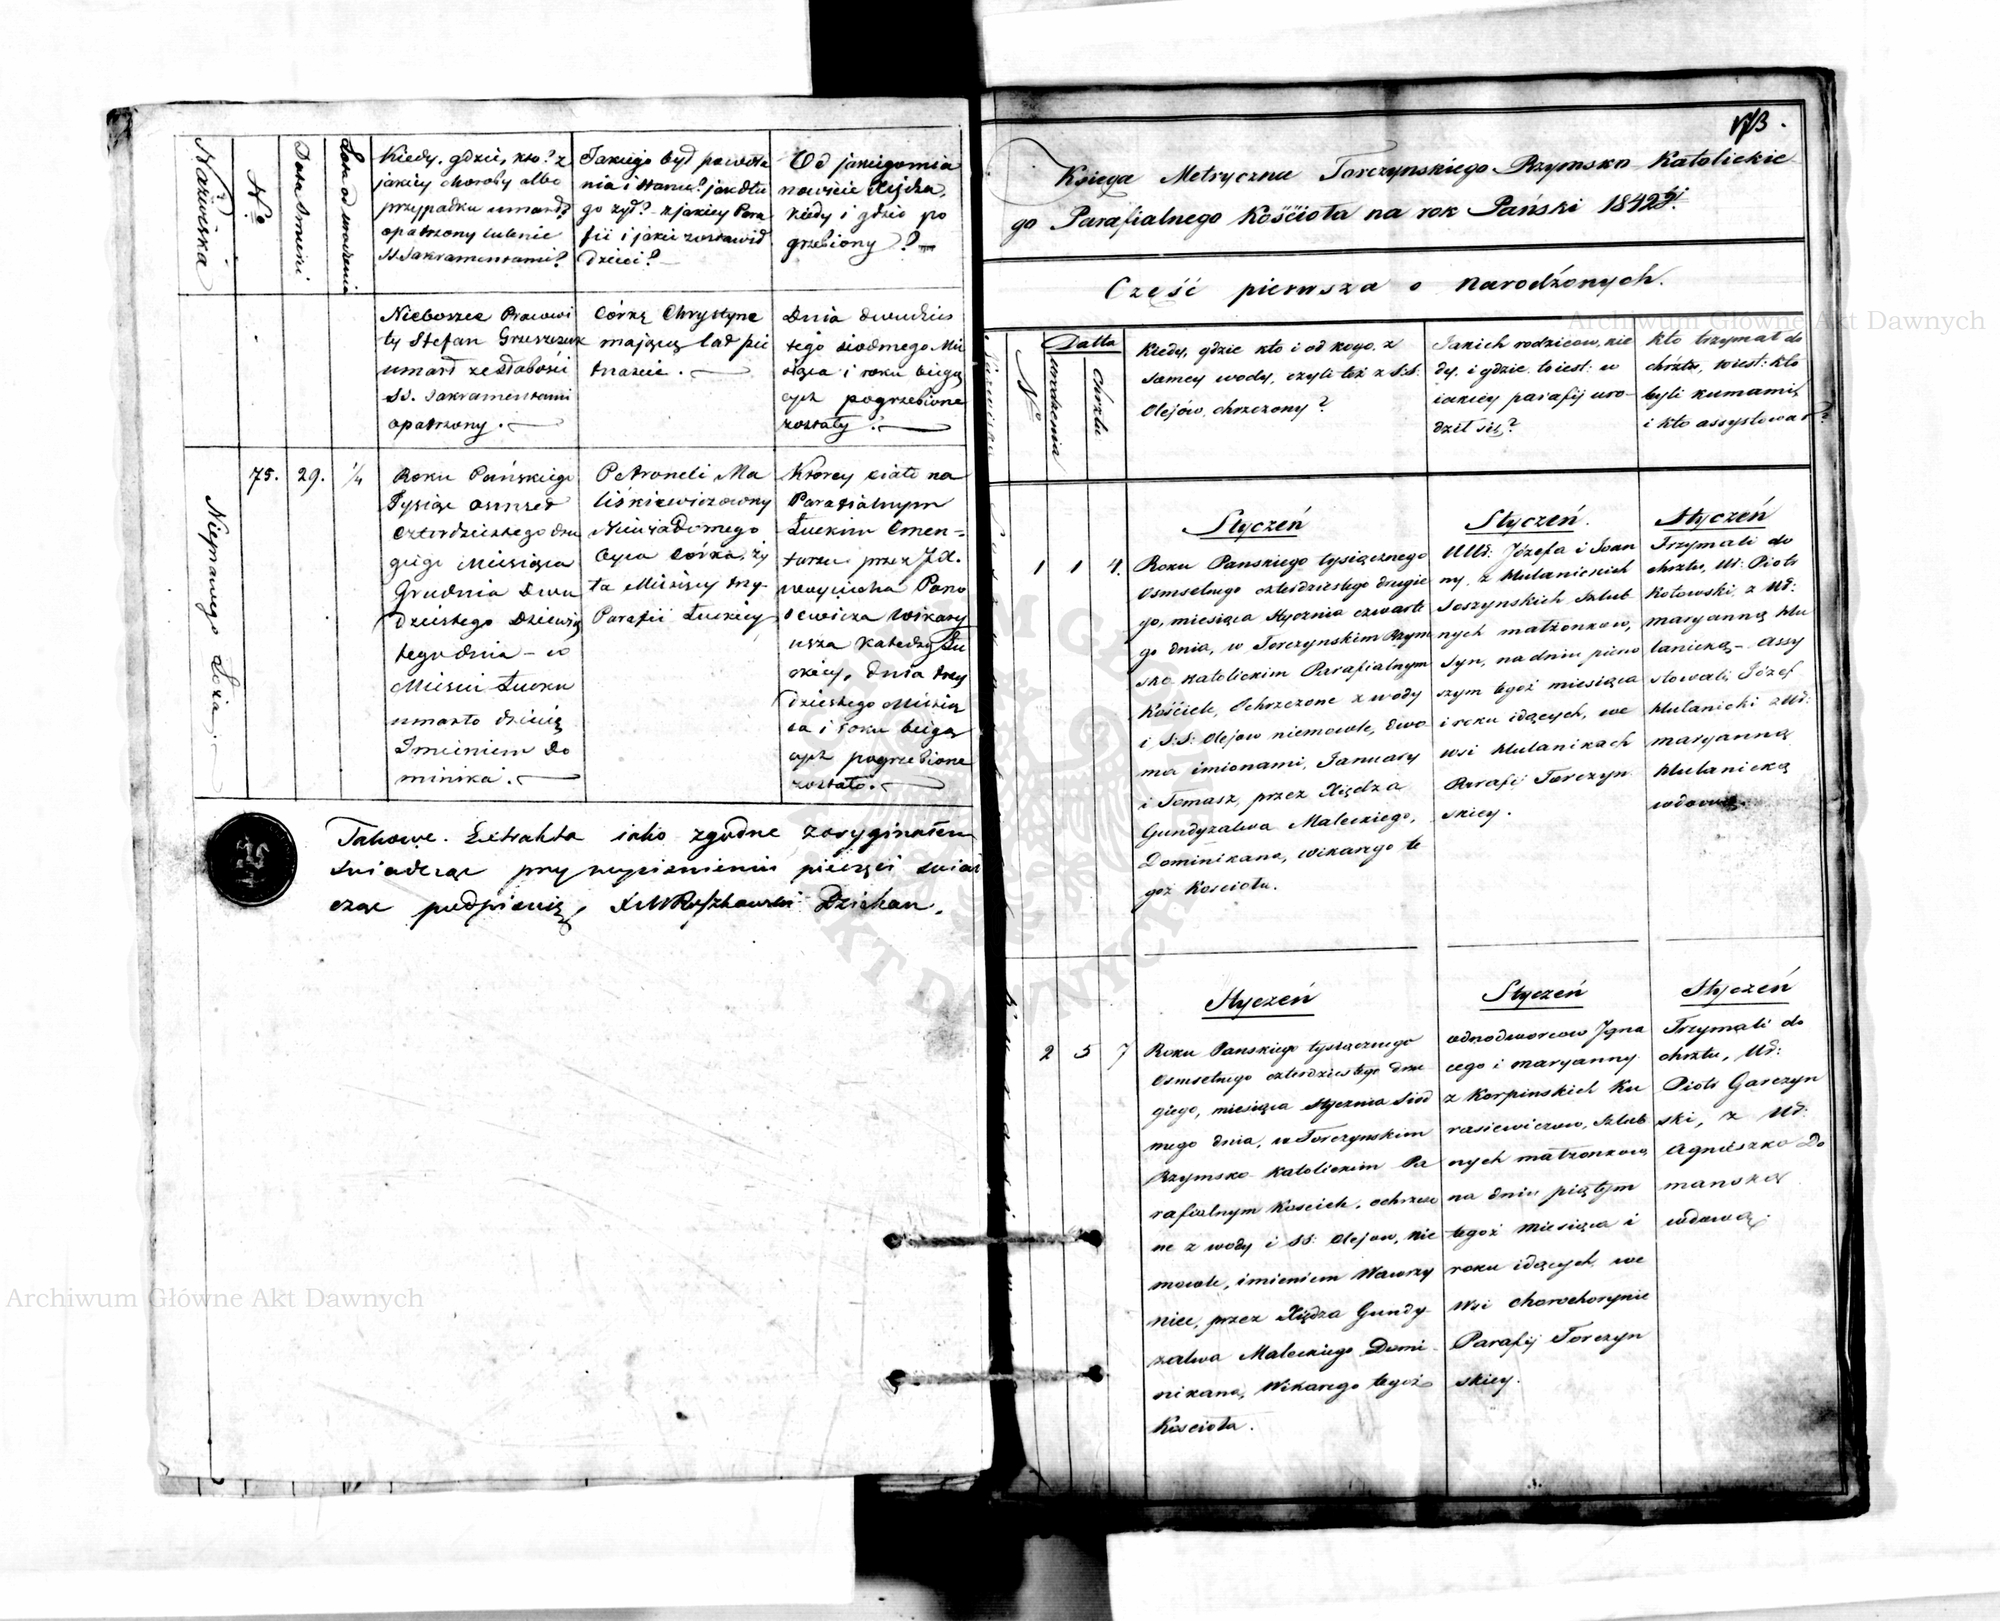 Nazwiska
No
Data Śmierci
Lata od urodzenia
Kiedy, gdzie, kto? z
jakiey choroby albo
przypadku umarł?
opatrzony lub nie
SS. Sakramentami?
Jakiego był powoła
nia i stanu? jak dłu
go żył? z jakiey Para
fii i jakie zostawił
dzieci?
Od jakiego mia
nowicie Xiędza,
kiedy i gdzie po
grzebiony?
Nieboszcz Pracowi
ty Stefan Gruszczuk
umarł ze słabości
SS. Sakramentami
opatrzony.
Córkę Chrystynę
mającą lat pię
tnaście.
Dnia dwudzies
tego siodmego Mie
siąca i roku bieżą
cych pogrzebione
zostały.
Nieprawego Łoża
75.
29.
1/4
Roku Pańskiego
Tysiąc osmset
czterdziestego dru
giego Miesiąca
Grudnia Dwu
dziestego Dziewią
tego dnia - w
Mieście Łucku
umarło dziecię
Imieniem Do
minika.
Petroneli Ma
liśkiewiczowny
Niewiadomego
Oyca córka, ży
ła Miesięcy trzy
Parafii Łuckiey
Ktorey ciało na
Parafialnym
Łuckim Cmen-
tarzu przez JX.
Woyciecha Pano
sewicza Wikary
usza Katedry Łu
ckiey, dnia trzy
dziestego Miesią
ca i roku bieżą
cych pogrzebione
zostało.
Takowe Extrakta iako zgodne z oryginałem
świadcząc przy wyciśnieniu pieczęci
podpisuię, Dziekan.
173.
Księga Metryczna Torczynskiego Rzymsko Katolickie
go Parafialnego Kościoła na rok Pański 1842gi.
Część pierwsza o Narodzonych.
Nazwiska
No
Datta
urodzenia
chrztu
Kiedy, gdzie kto i od kogo, z
samey wody, czyli też z S:S:
Olejów, chrzczony?
Jakich rodziców, kie
dy, i gdzie, to iest: w
iakiey parafij uro-
dził się?
Kto trzymał do
chrztu, to iest: kto
byli kumami,
i kto assystował?
Styczeń
Styczeń.
Styczeń
1
1
4.
Roku Panskiego tysiącznego
Osmsetnego czterdziestego drugie
go, miesiąca Stycznia czwarte
go dnia, w Torczynskim Rzym
sko Katolickim Parafialnym
Kościele, Ochrzczone z wody
i S:S: Olejow niemowle, dwo
ma imionami, January
i Tomasz, przez Xiędza
Gundyzalwa Maleckiego,
Dominikana, wikarego te
goż Kosciołu.
UUr: Józefa i Joan
ny, z Hulanickich
Soszynskich Szlub
nych małżonkow,
Syn, na dniu pierw
szym tegoż miesiąca
i roku idących, we
wsi Hulanikach
Parafij Torczyn
skiey.
Trzymali do
chrztu, Ur: Piotr
Kotowski, z Ur:
Maryanną Hu
lanicką - Assy
stowali, Józef
Hulanicki z Ur:
Maryanną
Hulanicką
wdową.
Styczeń
Styczeń
Styczeń
2
5
7
Roku Panskiego tysiącznego
Osmsetnego czterdziestego dru
giego, miesiąca Stycznia siod
mego dnia, w Torczynskim
Rzymsko Katolickim Pa
rafialnym Kosciele, ochrzczo
ne z wody i SS: Olejow, nie
mowle, imieniem Wawrzy
niec, przez Xiędza Gundy-
zalwa Maleckiego Domi-
nikana, Wikarego tegoż
Kosciola.
odnodworcow Igna
cego i Maryanny
z Korpinskich Ku
rasiewiczow, Szlub
nych małżonkow
na dniu piątym
tegoż Miesiąca i
roku idących, we
Wsi Chorochorynie
Parafij Torczyn
skiey.
Trzymali do
chrztu, Ur:
Piotr Garczyn
ski, z Ur:
Agnieszką Do
manską
wdową.
Archiwum Główne Akt Dawnych
Archiwum Główne Akt Dawnych